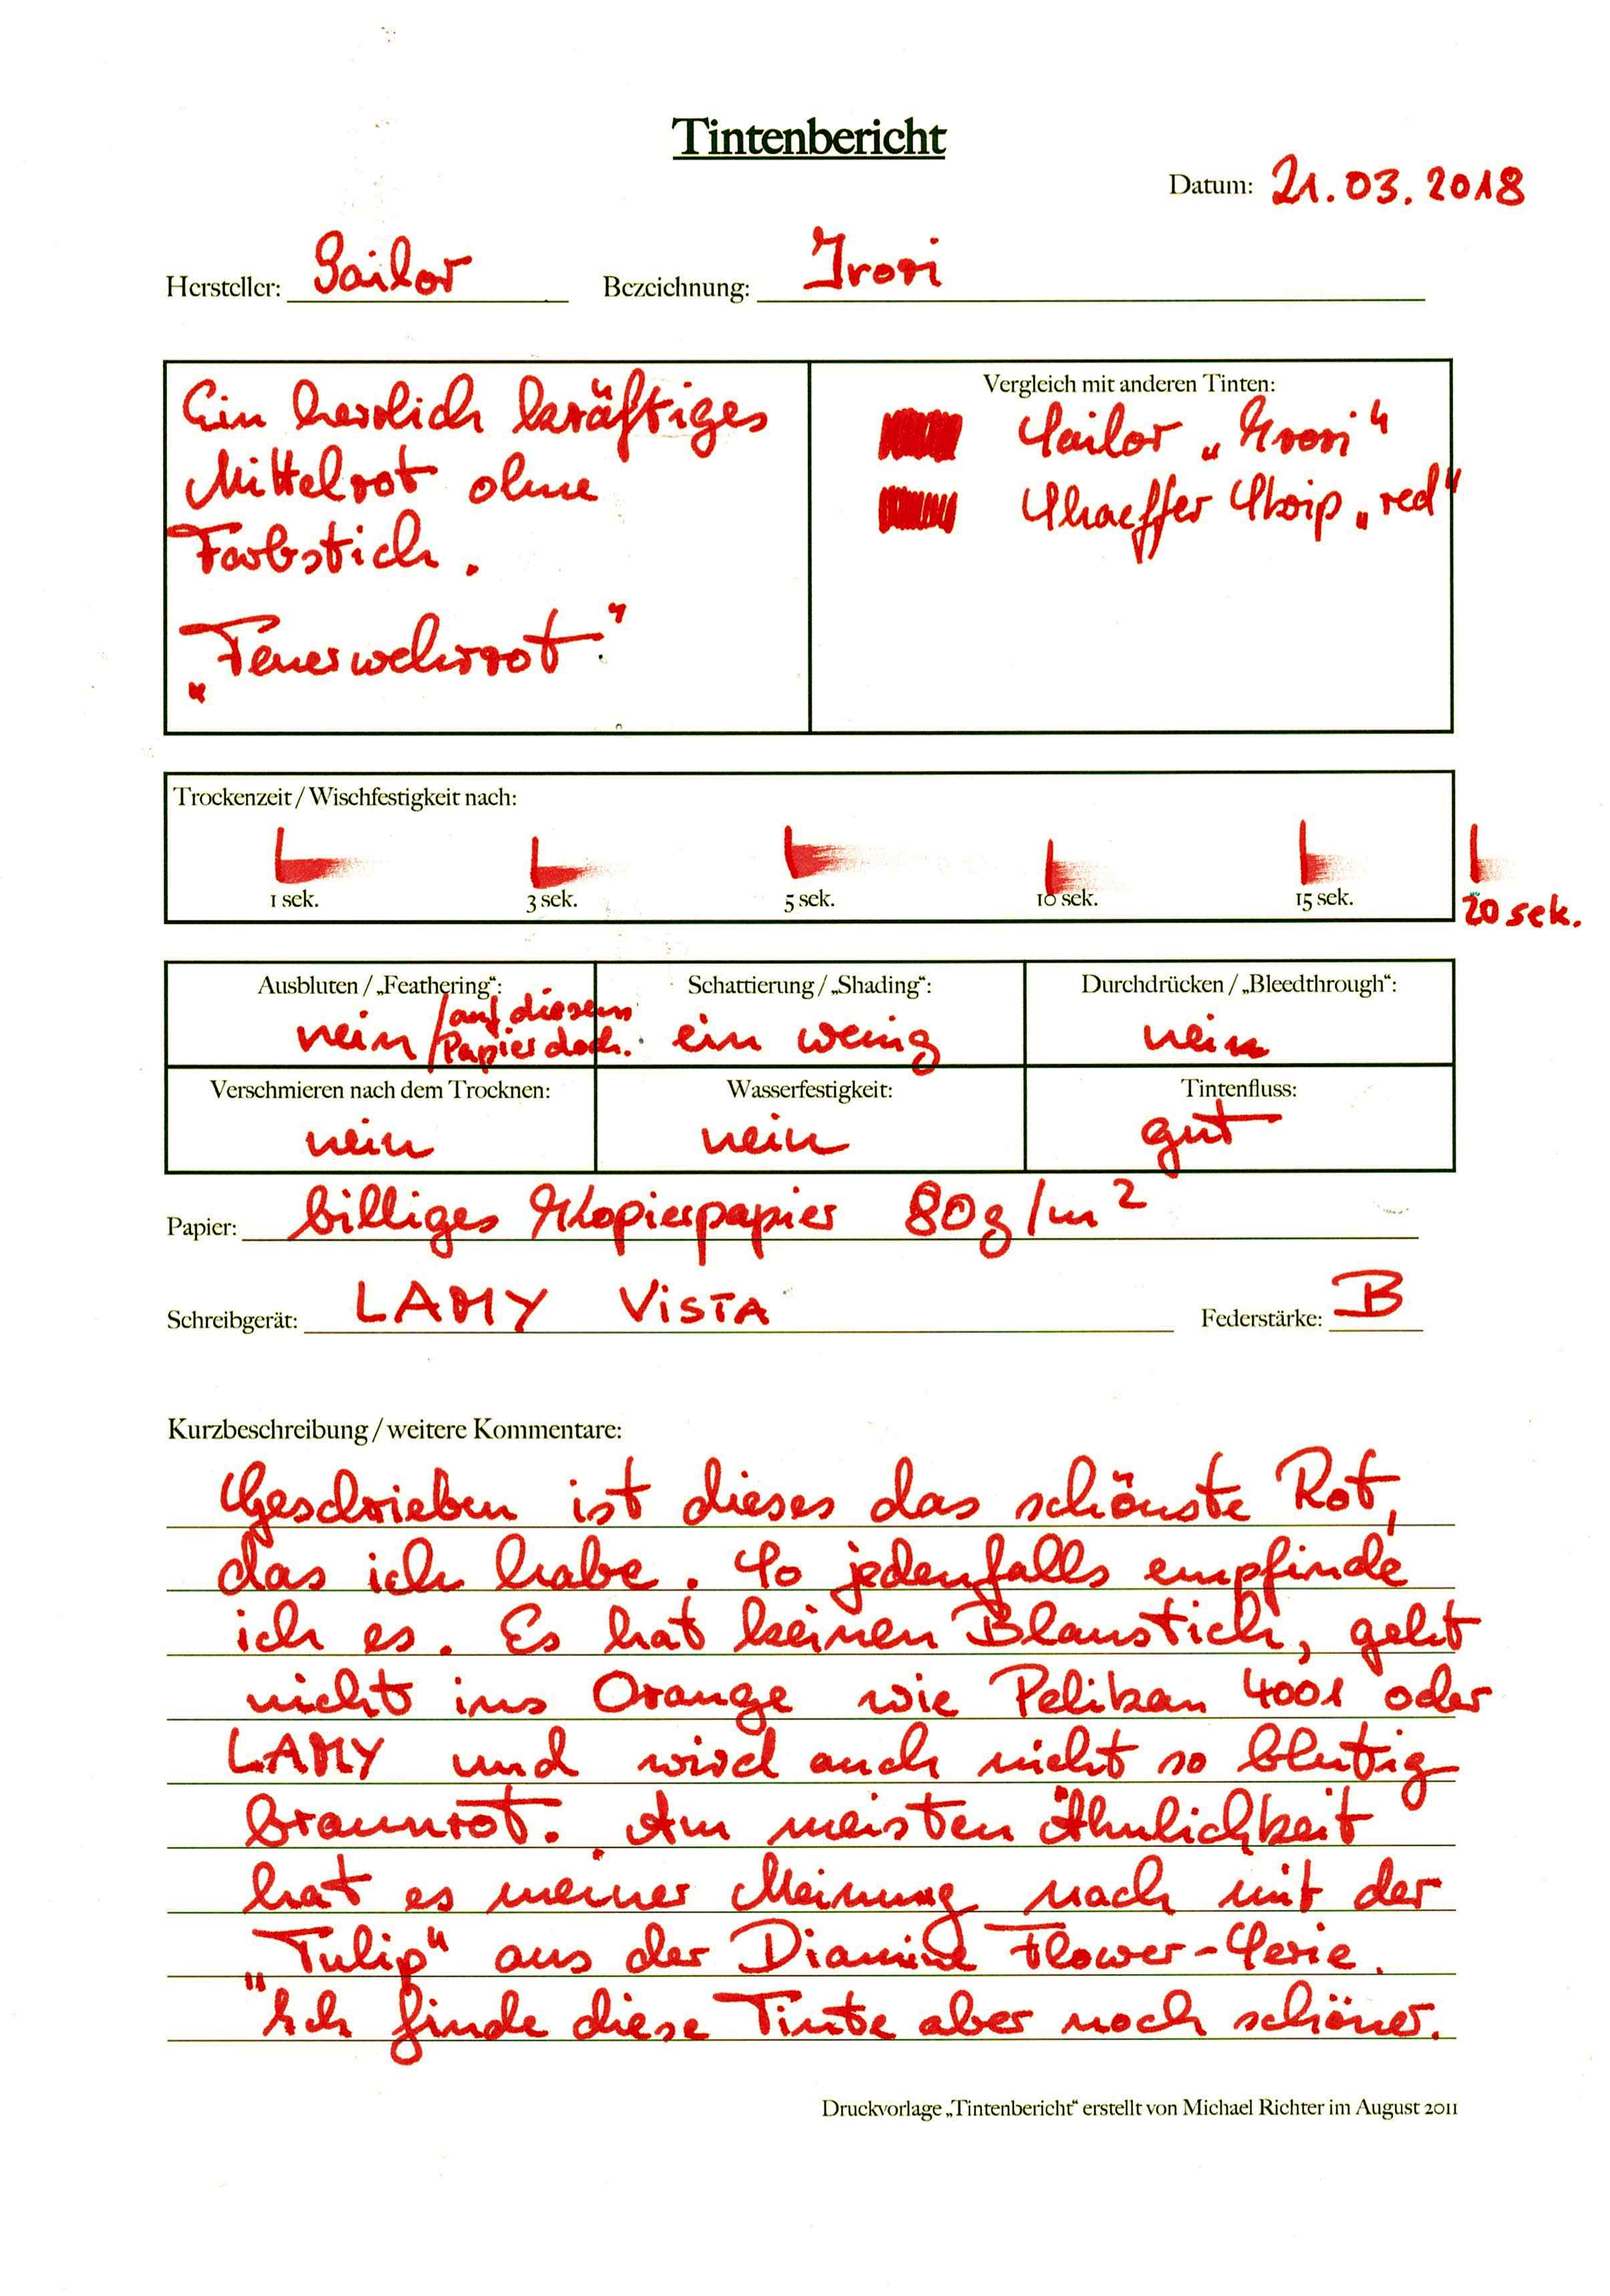 Tintenbericht
Datum: 21.03.2018
Hersteller: Sailor Bezeichnung: Irori
Ein herrlich kräftiges
Mittelrot ohne
Farbstich.
„Feuerwehrrot."
Vergleich mit anderen Tinten:
Sailor „Irori"
Shaeffer Skrip „red"
Trockenzeit / Wischfestigkeit nach:
1 sek. 3 sek. 5 sek. 10 sek. 15 sek. 20 sek.
Ausbluten / „Feathering“:
nein / auf diesem
Papier doch.
Schattierung / „Shading“:
ein wenig
Durchdrücken / „Bleedthrough“:
nein
Verschmieren nach dem Trocknen:
nein
Wasserfestigkeit:
nein
Tintenfluss:
gut
Papier: billiges Kopierpapier 80g/m²
Schreibgerät: LAMY ViSTA Federstärke: B
Kurzbeschreibung / weitere Kommentare:
Geschrieben ist dieses das schönste Rot,
das ich habe. So jedenfalls empfinde
ich es. Es hat keinen Blaustich, geht
nicht ins Orange wie Pelikan 4001 oder
LAMY und wird auch nicht so blutig
braunrot. Am meisten Ähnlichkeit
hat es meiner Meinung nach mit der
„Tulip" aus der Diamine Flower-Serie.
Ich finde diese Tinte aber noch schöner.
Druckvorlage „Tintenbericht“ erstellt von Michael Richter im August 2011